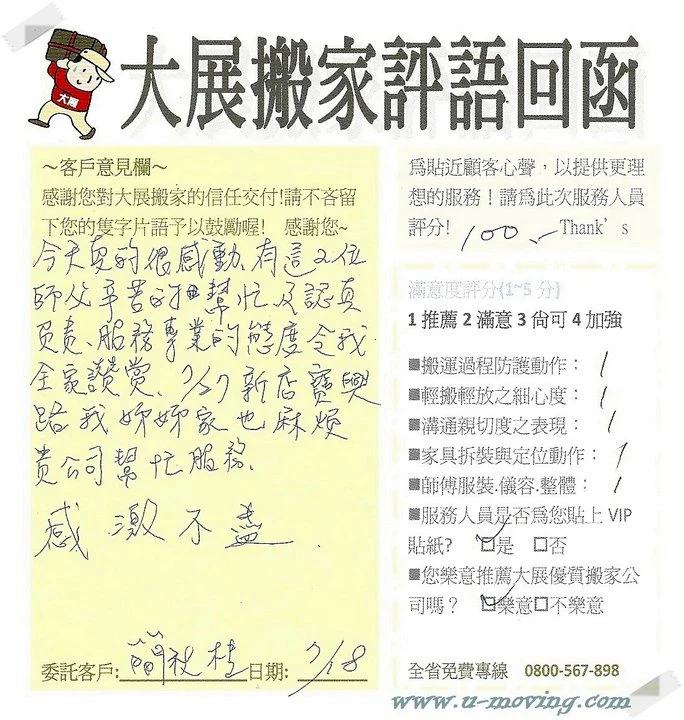 大展搬家評語回函
大展
～客戶意見欄～
感謝您對大展搬家的信任交付!請不吝留
下您的隻字片語予以鼓勵喔!　感謝您~
今天真的很感動、有這2位
師父辛苦的幫忙及認真
負責、服務專業的態度令我
全家讚賞、7/27新店寶興
路我姊姊家也麻煩
貴公司幫忙服務.
感激不盡.
委託客戶:簡秋桂日期:7/18
為貼近顧客心聲，以提供更理
想的服務！請為此次服務人員
評分! 100 Thank’s
滿意度評分(1~5 分)
1 推薦 2 滿意 3 尚可 4 加強
■搬運過程防護動作： 1
■輕搬輕放之細心度： 1
■溝通親切度之表現： 1
■家具拆裝與定位動作： 1
■師傅服裝.儀容.整體： 1
■服務人員是否為您貼上 VIP
貼紙? ☑是 □否
■您樂意推薦大展優質搬家公
司嗎？ ☑樂意□不樂意
全省免費專線 0800-567-898
www.u-moving.com